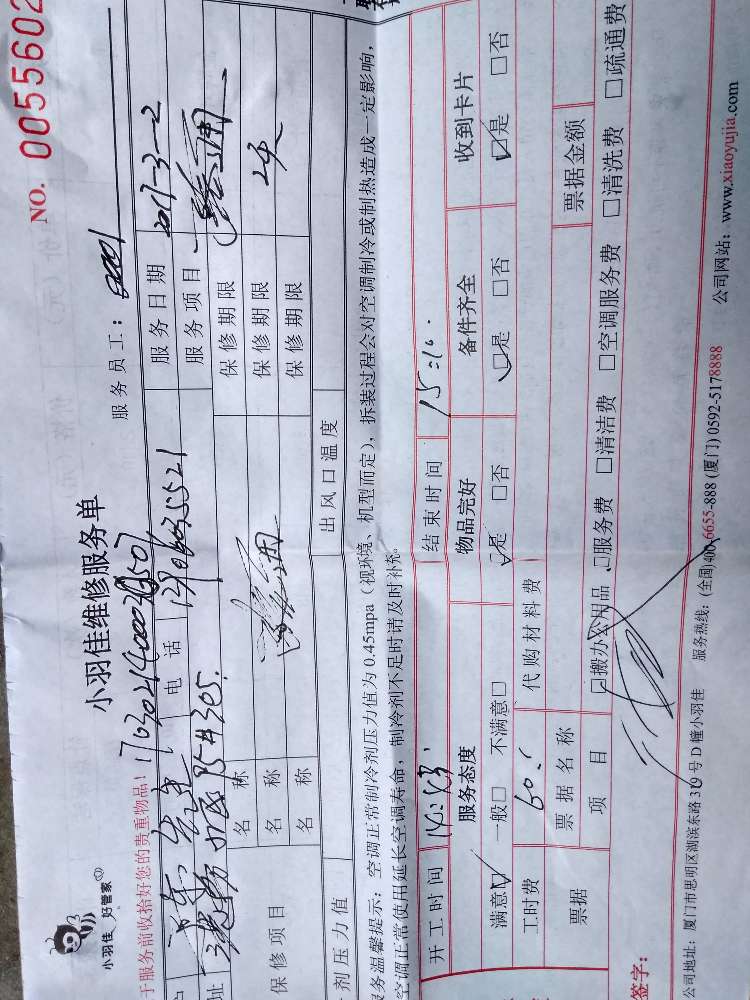 NO. 0055602
小羽佳 好管家
小羽佳维修服务单
服务员工：
于服务前收拾好您的贵重物品！
电话
服务日期 2017-3-2
址
服务项目
保修项目
名称
保修期限
名称
保修期限
名称
保修期限
剂压力值
出风口温度
服务温馨提示：空调正常制冷剂压力值为 0.45mpa（视环境、机型而定），拆装过程会对空调制冷或制热造成一定影响，
空调正常使用延长空调寿命，制冷剂不足时请及时补充。
开工时间
结束时间 15:10
服务态度 物品完好 备件齐全 收到卡片
满意☑ 一般□ 不满意□ ☑是 □否 ☑是 □否 ☑是 □否
工时费 60 代购材料费
票据 票据名称 票据金额
项目 ☑搬办公用品 □服务费 □清洁费 □空调服务费 □清洗费 □疏通费
签字：
公司地址：厦门市思明区湖滨东路 319 号 D 幢小羽佳 服务热线：(全国)400-6655-888 (厦门) 0592-5178888 公司网站：www.xiaoyujia.com